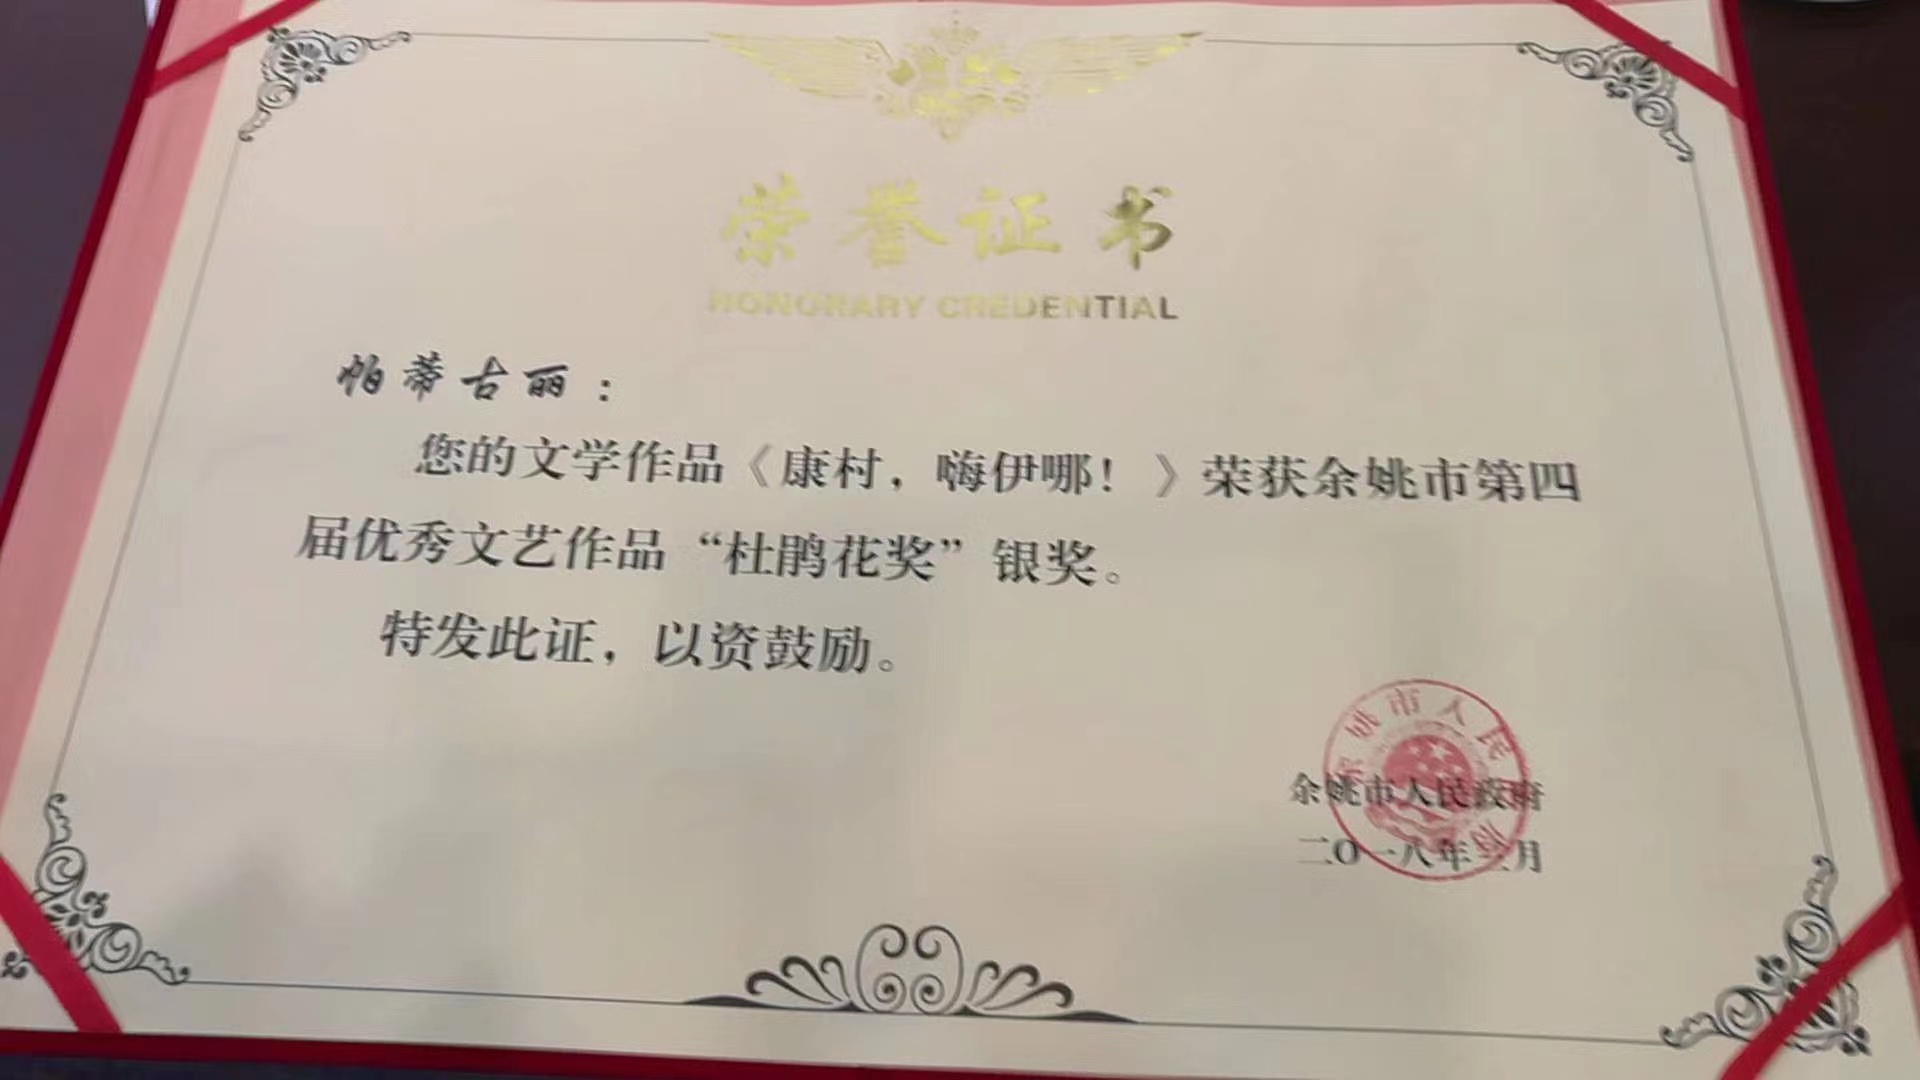 荣誉证书
HONORARY CREDENTIAL
帕蒂古丽：
您的文学作品《康村，嗨伊哪！》荣获余姚市第四
届优秀文艺作品“杜鹃花奖”银奖。
特发此证，以资鼓励。
余姚市人民政府
二〇一八年三月